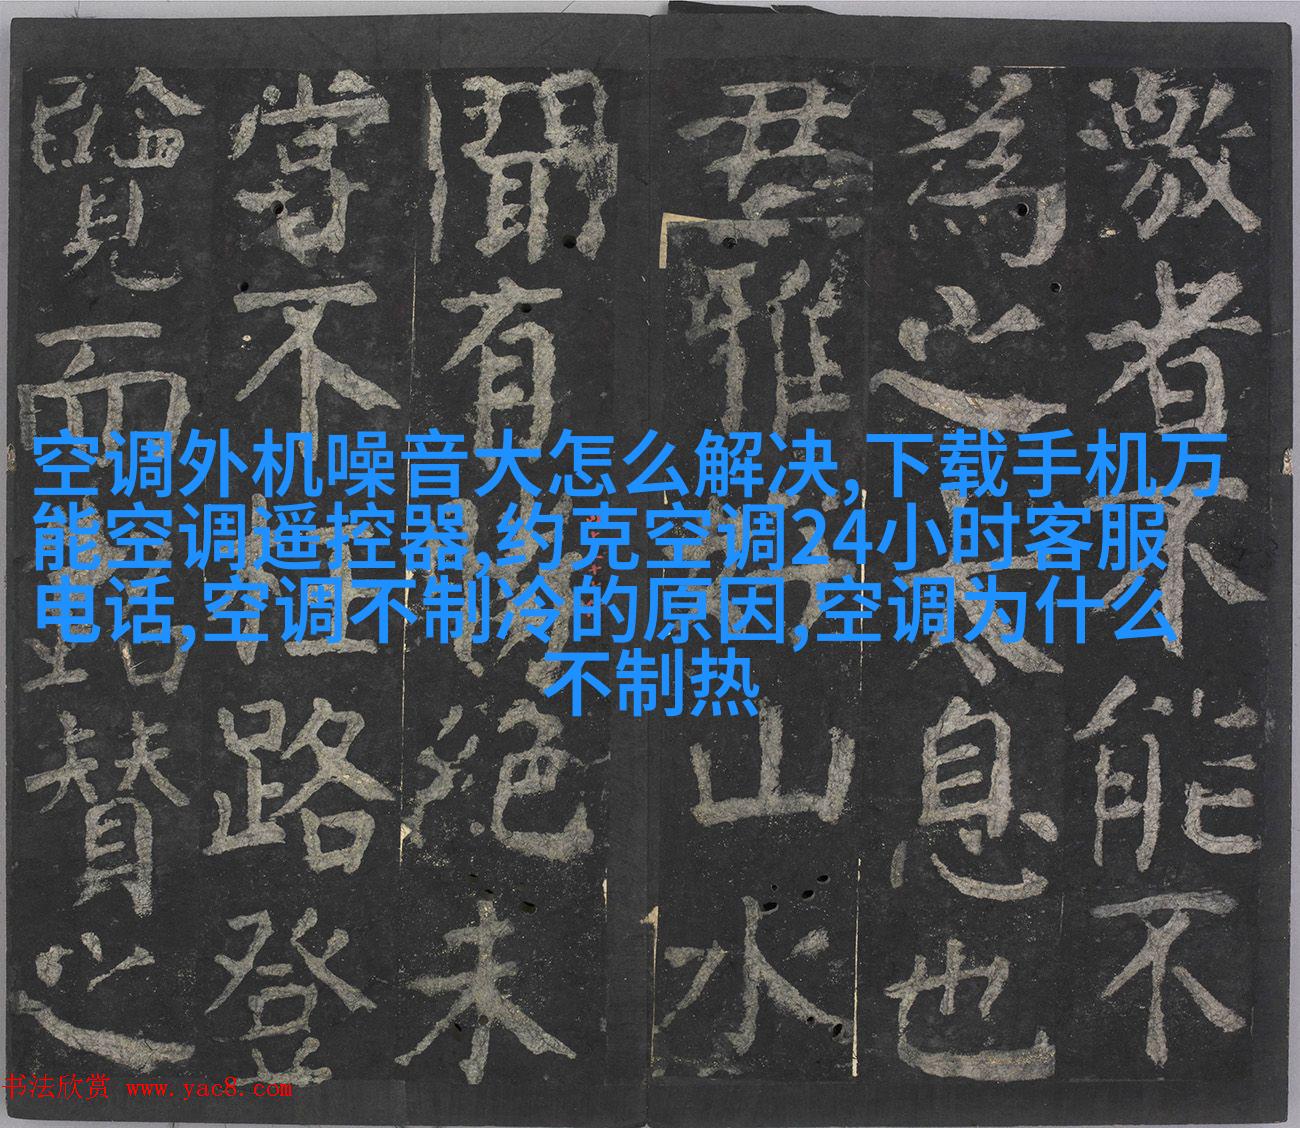 激者不能不
為之息也
君雅山水
聞有絕未
嘗不路登
覽而賛之
空调外机噪音大怎么解决,下载手机万
能空调遥控器,约克空调24小时客服
电话,空调不制冷的原因,空调为什么
不制热
书法欣赏 www.yac8.com